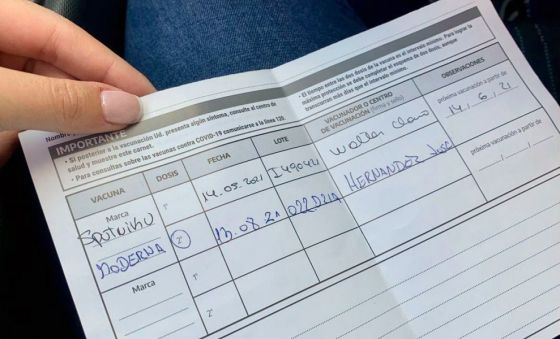 Nombre
IMPORTANTE
• Si posterior a la vacunación Ud. presenta algún síntoma, consulte al centro de
salud y muestre este carnet.
• Para consultas sobre las vacunas contra COVID-19 comunicarse a la línea 120.
• El tiempo entre las dos dosis de la vacuna es el intervalo mínimo. Para lograr la
máxima protección se debe completar el esquema de dos dosis, aunque
transcurran más días que el intervalo mínimo.
VACUNA DOSIS FECHA LOTE VACUNADOR O CENTRO DE VACUNACIÓN (firma y sello) OBSERVACIONES
Marca
Sputnik V 1° 14.05.2021 I490421 Walter próxima vacunación a partir de
14.6.21
MODERNA 2° 13.08.21 022D21A HERNANDEZ José próxima vacunación a partir de
Marca
1°
2°